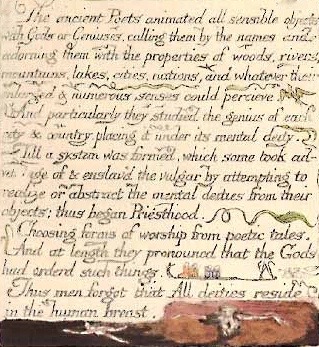 The ancient Poets animated all sensible objects
with Gods or Geniuses, calling them by the names and
adorning them with the properties of woods, rivers,
mountains, lakes, cities, nations, and whatever their
enlarged & numerous senses could percieve.
And particularly they studied the genius of each
city & country, placing it under its mental deity.
Till a system was formed, which some took ad-
-vantage of & enslav'd the vulgar by attempting to
realize or abstract the mental deities from their
objects: thus began Priesthood.
Choosing forms of worship from poetic tales.
And at length they pronounced that the Gods
had orderd such things.
Thus men forgot that All deities reside
in the human breast.